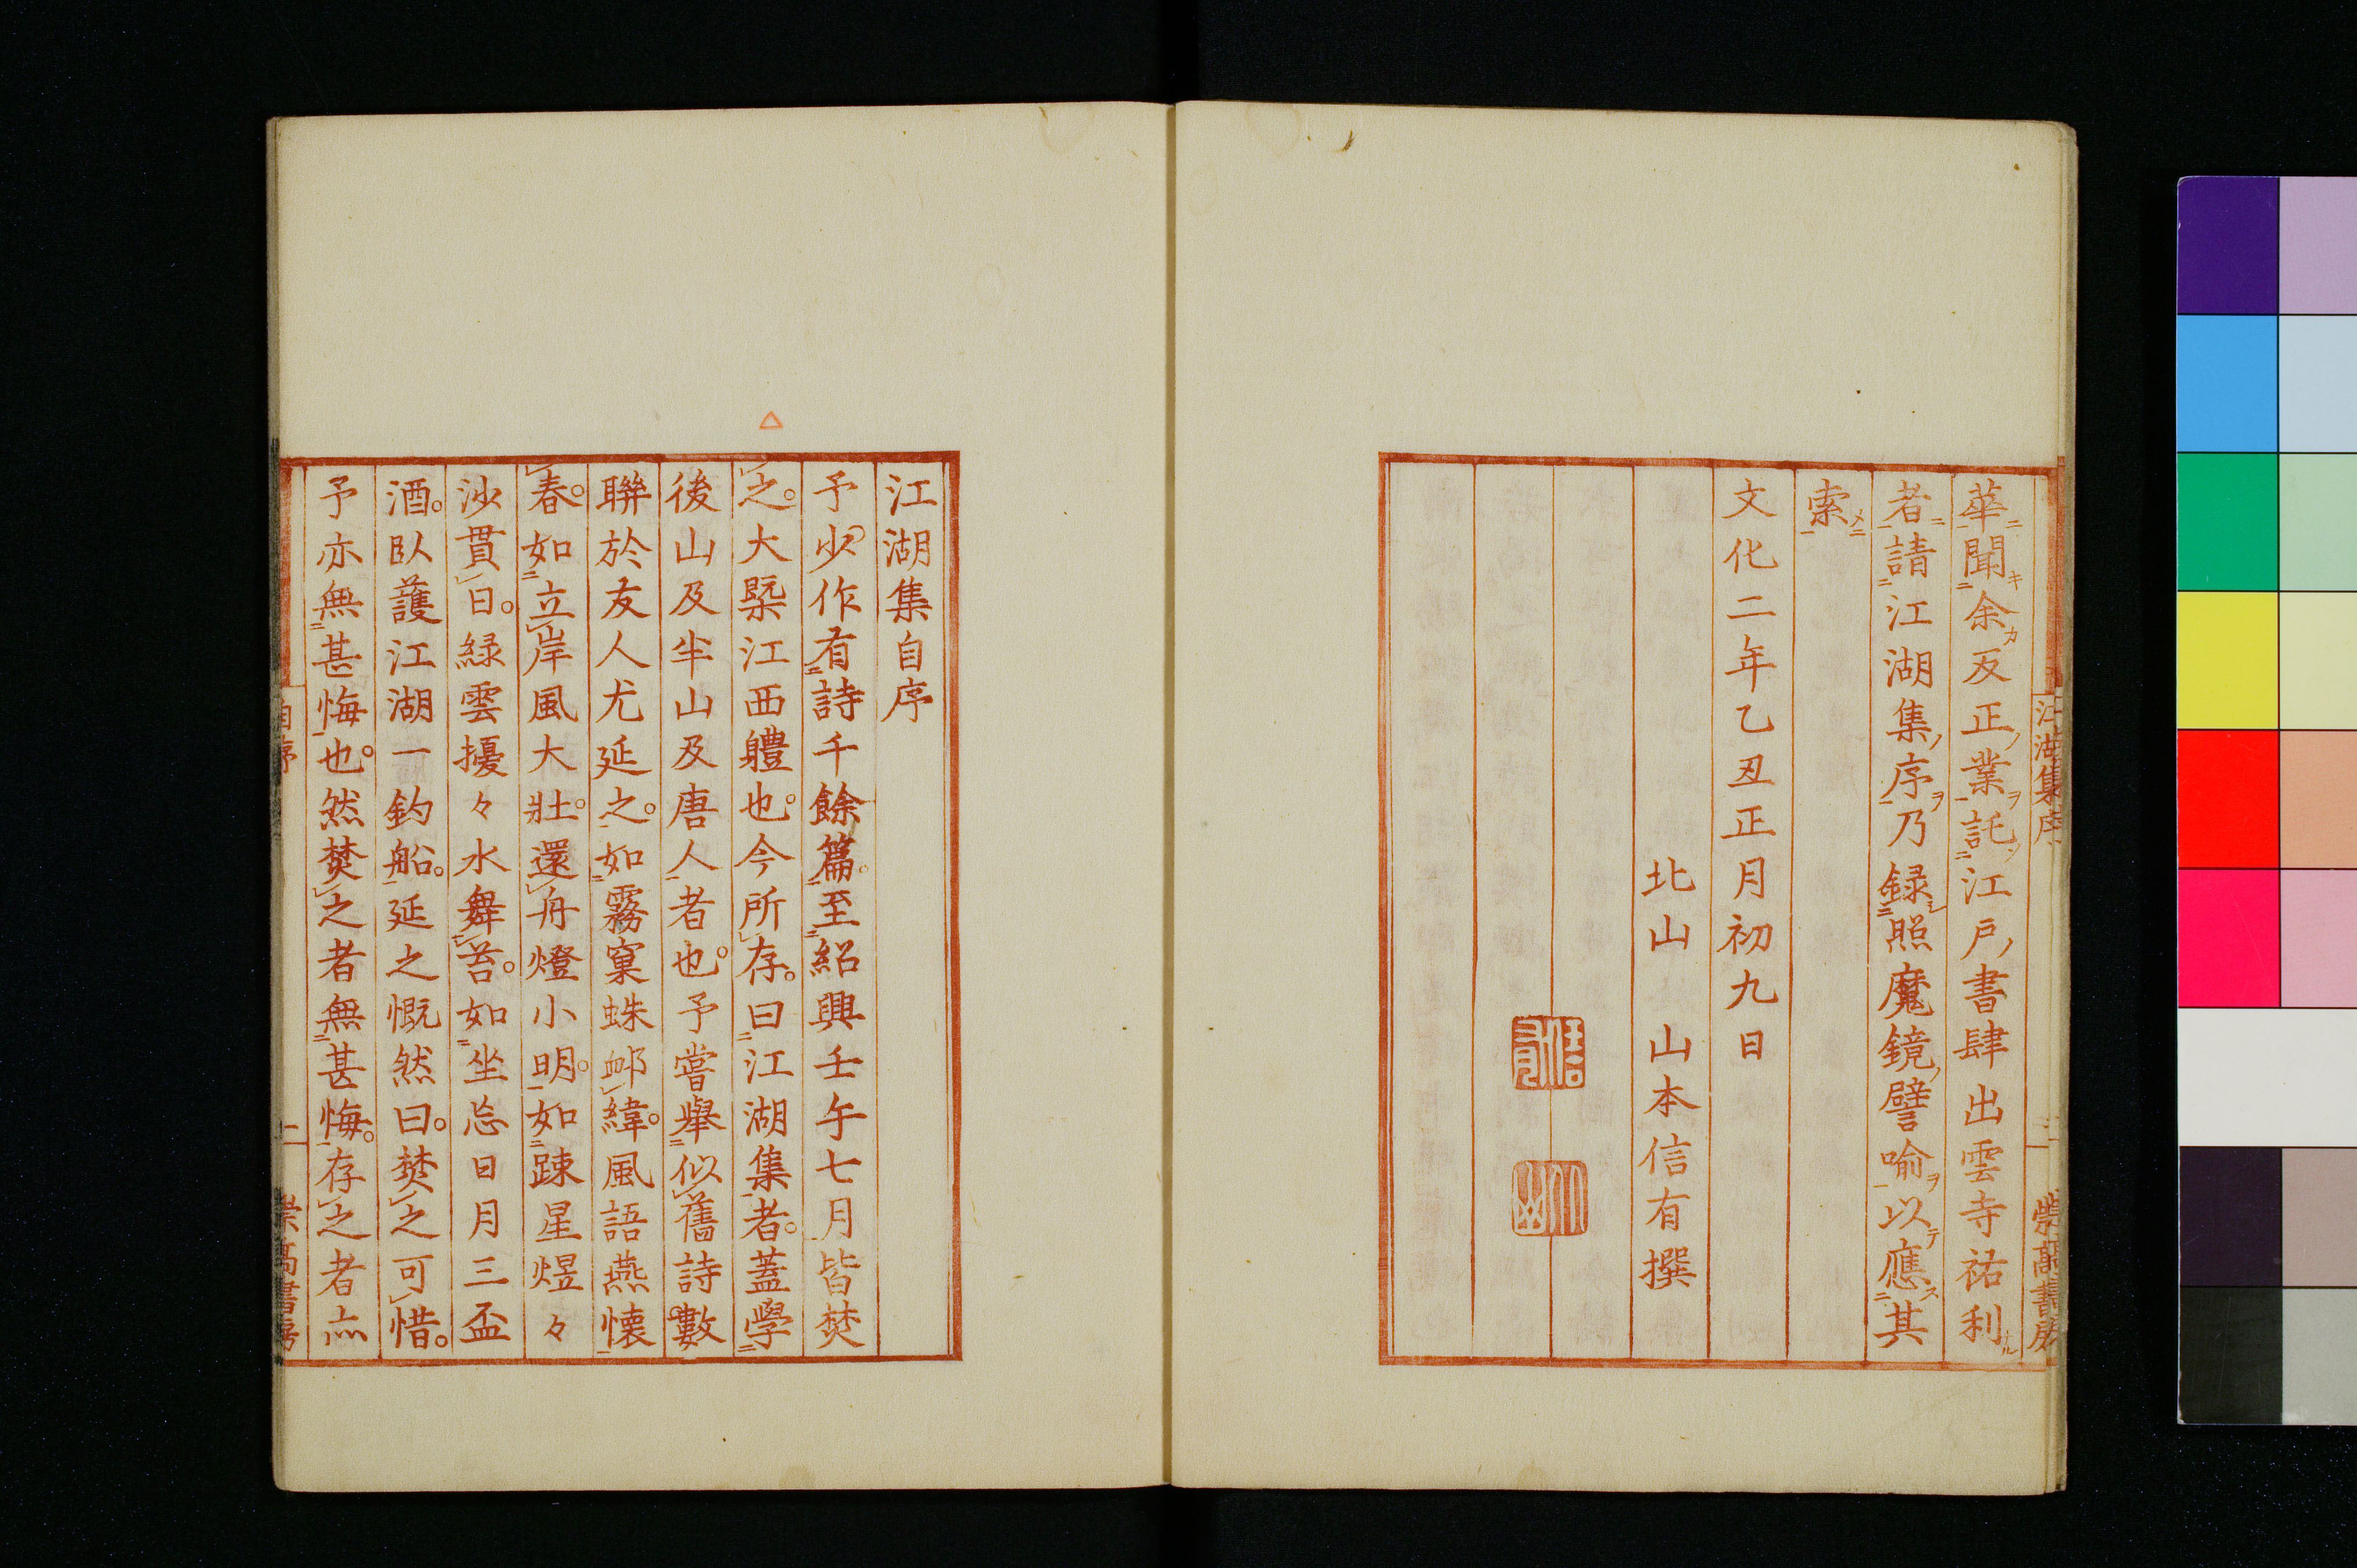 華聞余反正業託江戸書肆出雲寺祐利
者請江湖集序乃録照魔鏡譬喻以應其
索
文化二年乙丑正月初九日
北山　山本信有撰
江湖集序
江湖集自序
予少作有詩千餘篇至紹興壬午七月皆焚
之大槩江西軆也今所存曰江湖集者蓋學
後山及半山及唐人者也予嘗舉似舊詩數
聯於友人尤延之如霧窠蛛緯風語燕懐
春如立岸風大壯還舟燈小明如踈星煜々
沙貫日緑雲擾々水舞苔如坐忘日月三盃
酒臥護江湖一釣船延之慨然曰焚之可惜
予亦無甚悔也然焚之者無甚悔存之者亦